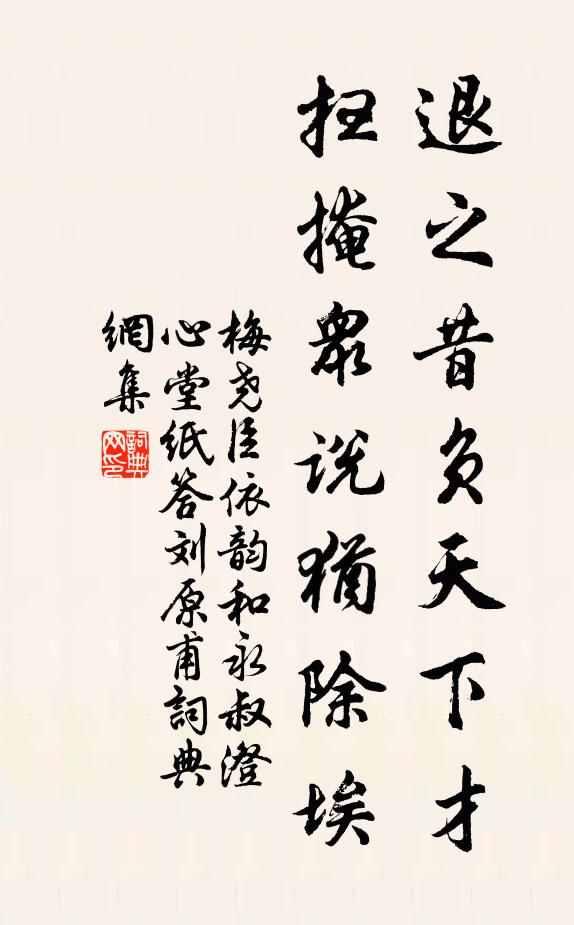 退之昔负天下才
扫掩眾说猶除埃
梅尧臣依韵和永叔澄
心堂纸答刘原甫詞典
網集
詞典
网印